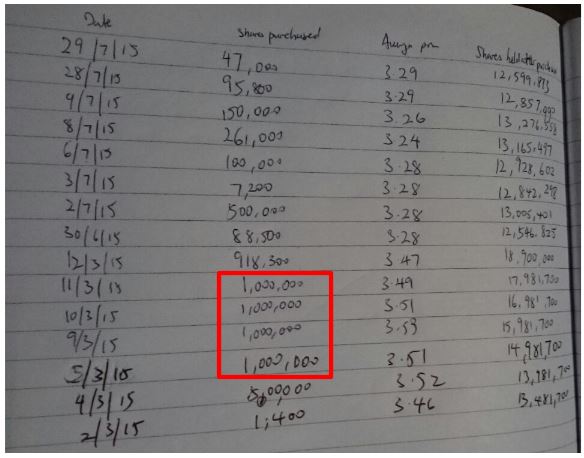 Date Shares purchased Shares held after purchase
29/7/15 47,000 3.29
28/7/15 95,800 3.29
9/7/15 150,000 3.26 13,276,558
8/7/15 261,000 3.24 13,165,497
6/7/15 100,000 3.28 12,928,602
3/7/15 7,200 3.28
2/7/15 500,000 3.28 13,005,401
30/6/15 88,500 3.28 12,546,825
12/3/15 918,300 3.47 18,900,000
11/3/15 1,000,000 3.49 17,981,700
10/3/15 1,000,000 3.51 16,981,700
9/3/15 1,000,000 3.53 15,981,700
5/3/15 1,000,000 3.51 14,981,700
4/3/15 3.52
2/3/15 1,400 3.46 13,481,700